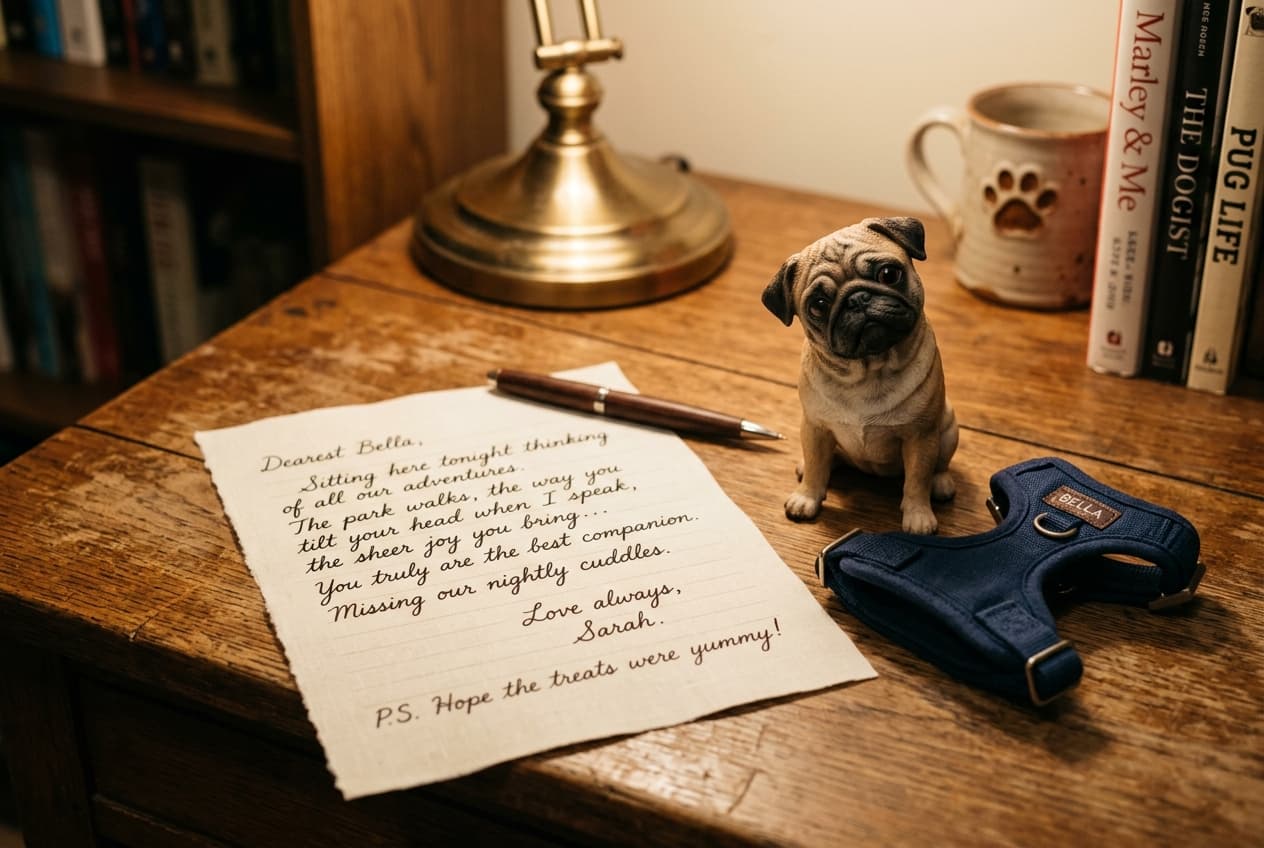 Dearest Bella,
Sitting here tonight thinking
of all our adventures.
The park walks, the way you
tilt your head when I speak,
the sheer joy you bring...
You truly are the best companion.
Missing our nightly cuddles.
Love always,
Sarah.
P.S. Hope the treats were yummy!
BELLA
Marley & Me
THE DOGIST
PUG LIFE